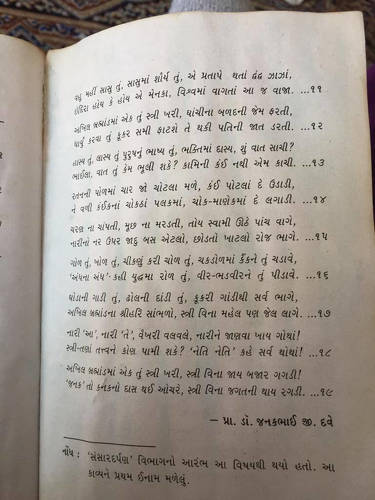 વહુ મહીં સાસુ તું, સાસુમાં શૌર્ય તું, એ પ્રતાપે થતાં દ્વંદ્વ ઝાઝાં,
ઈંદિરા હોય કે હોય એ મેનકા, વિશ્વમાં વાગતાં આ જ વાજા. ...૧૧
અખિલ બ્રહ્માંડમાં એક તું સ્ત્રી ખરી, ઘાંચીના બળદની જેમ ફરતી,
ધાર્યું કરવા તું કૂકર સમી ફાટશે તે થકી પતિની જાત ડરતી. ...૧૨
હાસ્ય તું, લાસ્ય તું પુરુષનું ભાષ્ય તું, ભક્તિમાં દાસ્ય, શું વાત સાચી?
ભાઈલા, વાત તું કેમ ભૂલી શકે? કામિની કંઈ નથી એમ કાચી. ...૧૩
રતનની પોળમાં ચાર જો ચોટલા મળે, કંઈ પોટલાં દે ઉડાડી,
ને વળી કંઈકનાં ચોકઠાં પલકમાં, ચોક-માણેકમાં દે લગાડી. ...૧૪
ચરણ ના ચાંપતી, મૂછ ના મરડતી, તોય સ્વામી ઊઠે પાંચ વાગે,
નારીનો નર ઉપર જાદુ બસ એટલો, છોડતો ખાટલો રોજ ભાગે. ...૧૫
ગોળ તું, ખોળ તું, ચીકણું કરી ચોળ તું, ચકડોળમાં કૈંકને તું ચડાવે,
'અંધના અંધ' - કહી યુદ્ધમા રોળ તું, વીર-ભડવીરને તું પીડાવે. ...૧૬
ઘોડાની ગાડી તું, ઢોલની દાંડી તું, કૂકરી ગાંડીથી સર્વ ભાગે,
અખિલ બ્રહ્માંડના શ્રીહરિ સાંભળો, સ્ત્રી વિના મહેલ પણ જેલ લાગે. ...૧૭
નારી 'આ', નારી 'તે', વેખરી વલવલે, નારીને જાણવા ખાય ગોથાં!
સ્ત્રી-તણાં તત્ત્વને કોણ પામી શકે? 'નેતિ નેતિ' કહે સર્વ થોથાં! ...૧૮
અખિલ બ્રહ્માંડમાં એક તું સ્ત્રી ખરી, સ્ત્રી વિના જાય બજાર ગગડી!
'જનક' તો કનકનો દાસ થઈ ઓચરે, સ્ત્રી વિના જગતની થાય રગડી. ...૧૯
– પ્રા. ડૉ. જનકભાઈ જી. દવે
નોંધ : 'સંસારદર્પણ' વિભાગનો આરંભ આ વિષયથી થયો હતો. આ
કાવ્યને પ્રથમ ઈનામ મળેલું.